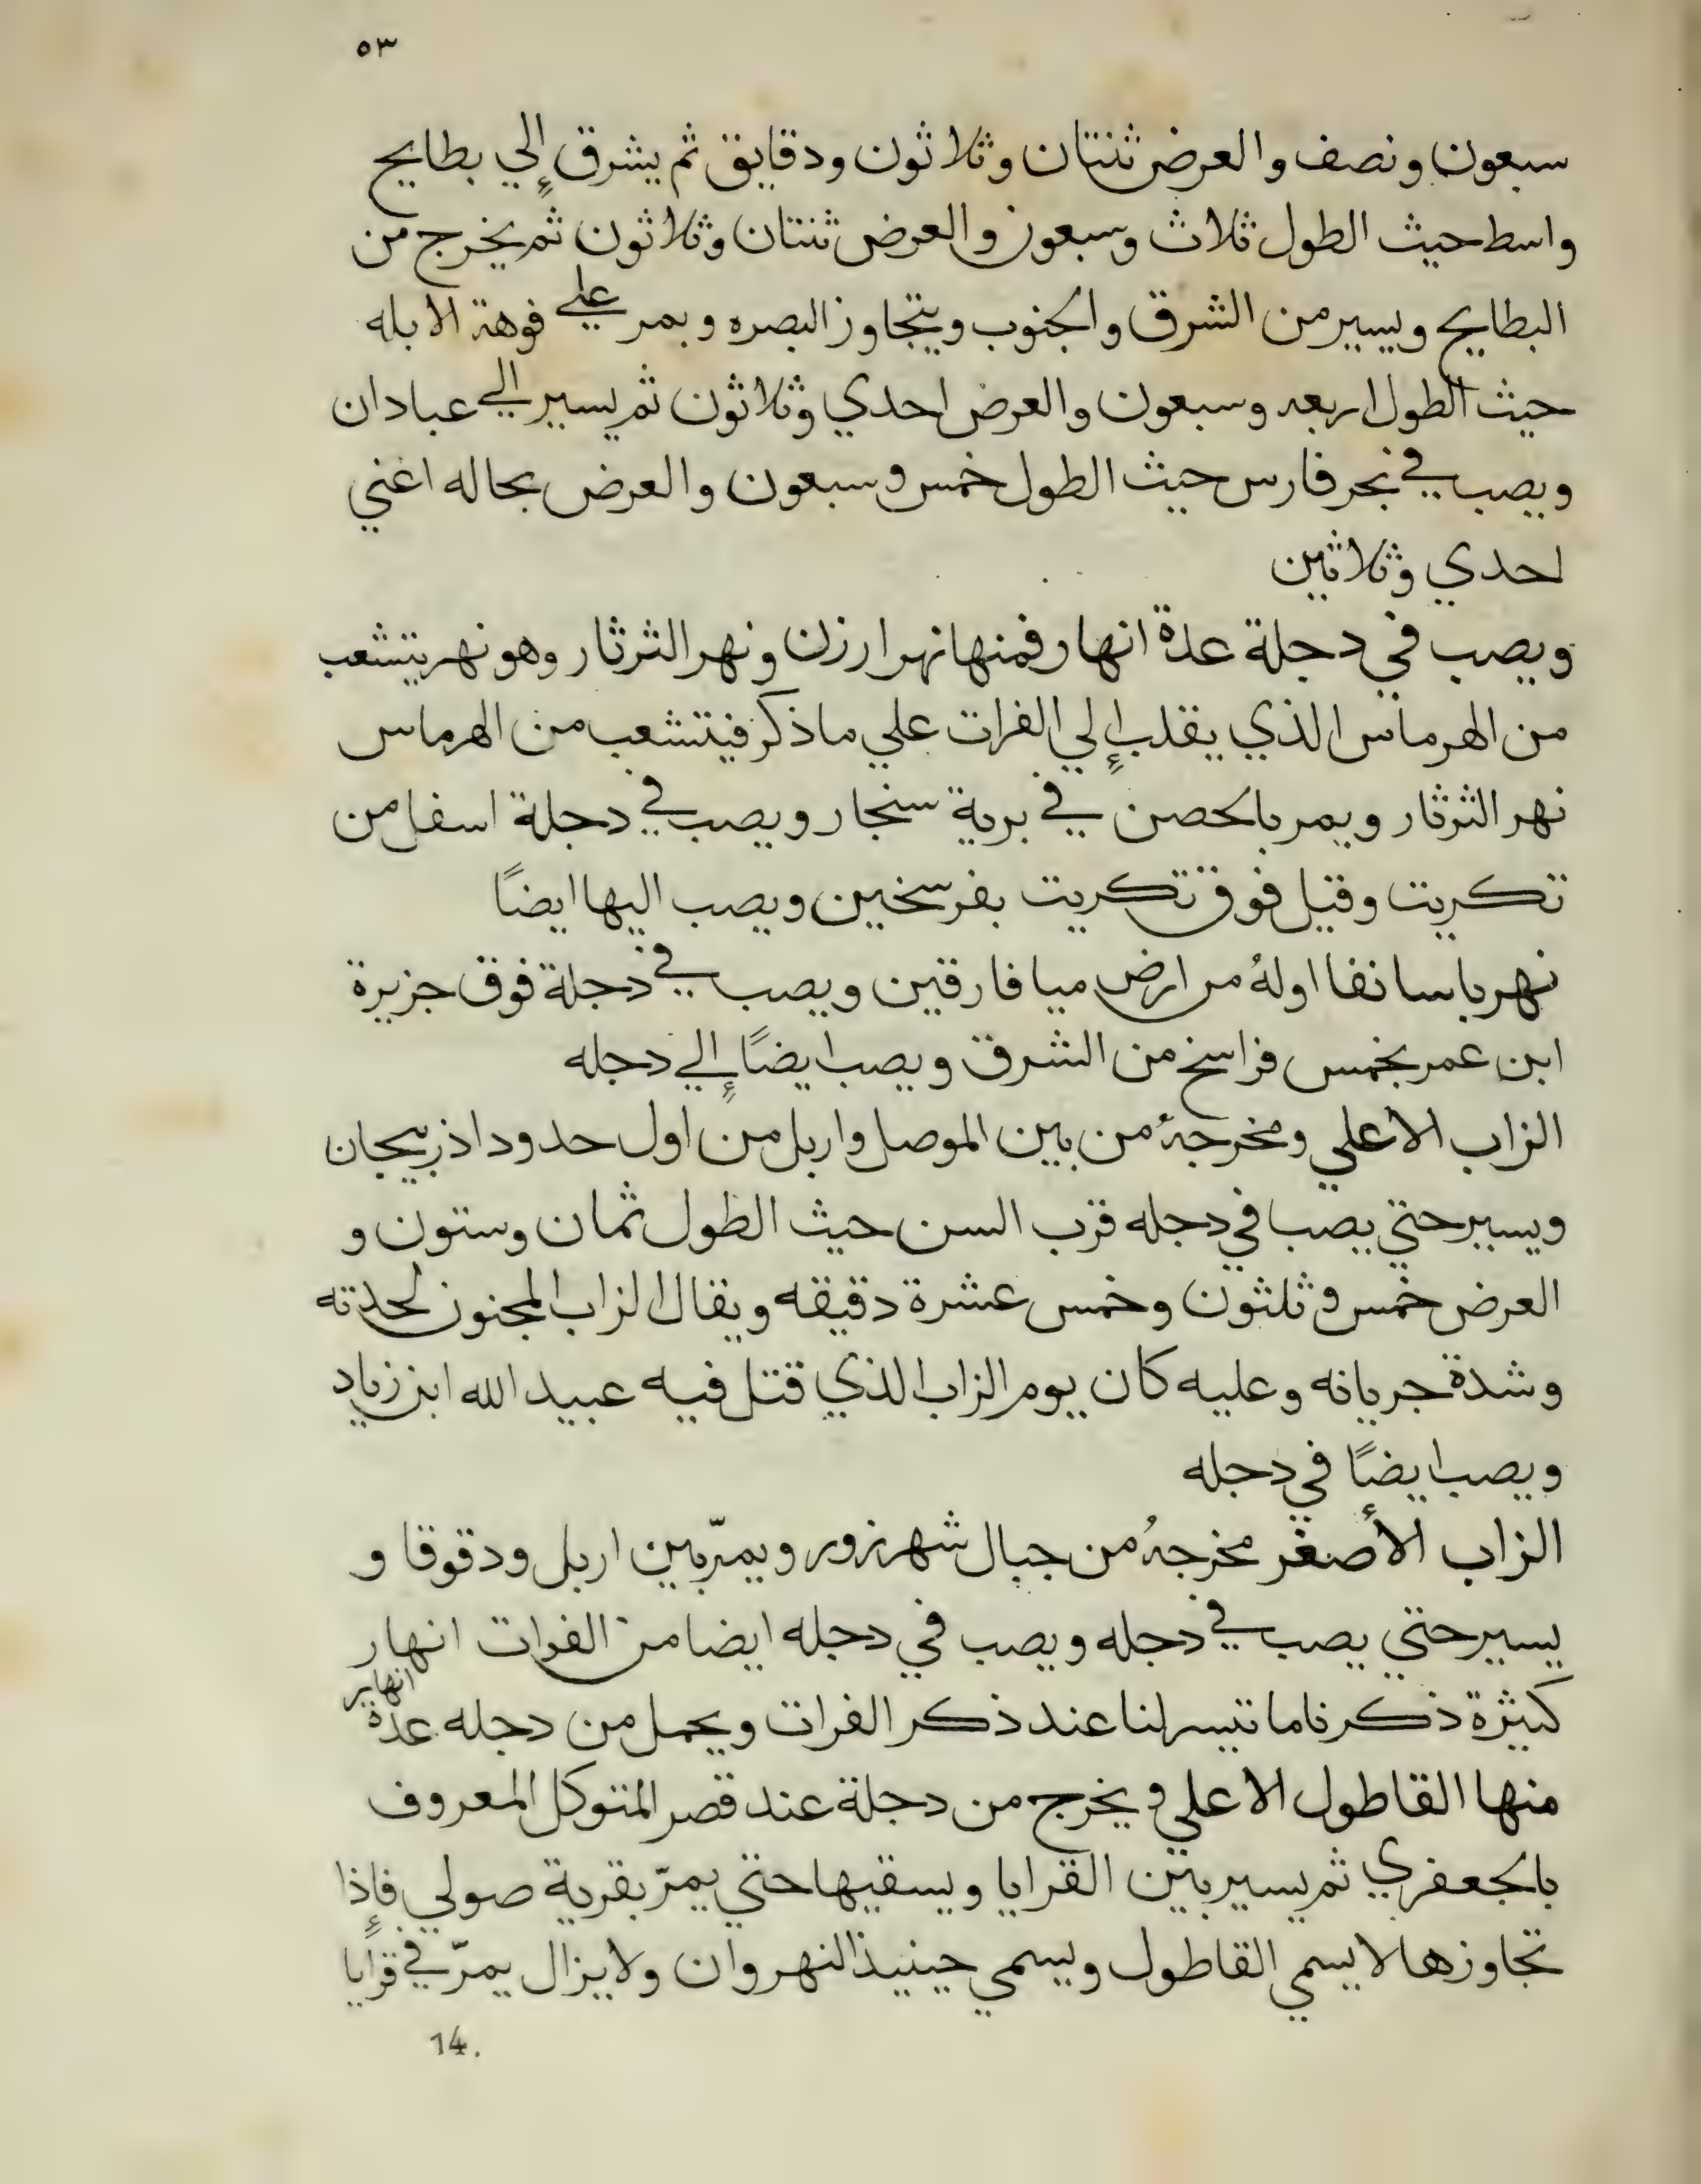 ٥٣
سبعون ونصف والعرض ثنتان وثلاثون ودقايق ثم يشرق إلي بطايح
واسط حيث الطول ثلاث وسبعون والعرض ثنتان وثلاثون ثم يخرج من
البطايح ويسير من الشرق والجنوب ويتجاوز البصره ويمر علي فوهة الابله
حيث الطول اربعه وسبعون والعرض احدي وثلاثون ثم يسير الي عبادان
ويصب في بحر فارس حيث الطول خمس وسبعون والعرض بحاله اعني
احدي وثلاثين
ويصب في دجلة عدة انهار فمنها نهر ارزن ونهر الثرثار وهو نهر يتشعب
من الهرماس الذي يقلب إلي الفرات علي ما ذكر فيتشعب من الهرماس
نهر الثرثار ويمر بالحصن في برية سنجار ويصب في دجلة اسفل من
تكريت وقيل فوق تكريت بفرسخين ويصب اليها ايضًا
نهر باسانفا اولهُ من ارض ميافارقين ويصب في دجلة فوق جزيرة
ابن عمر بخمس فراسخ من الشرق ويصب ايضًا إلي دجله
الزاب الاعلي ومخرجهُ من بين الموصل واربل من اول حدود اذربيجان
ويسير حتي يصب في دجله قرب السن حيث الطول ثمان وستون و
العرض خمس وثلثون وخمس عشرة دقيقه ويقال الزاب المجنون لحدته
وشدة جريانه وعليه كان يوم الزاب الذي قتل فيه عبيد الله ابن زياد
ويصب ايضًا في دجله
الزاب الأصغر مخرجهُ من جبال شهرزور ويمرّ بين اربل ودقوقا و
يسير حتي يصب في دجله ويصب في دجله ايضا من الفرات انهار
كثيرة ذكرنا ما تيسر لنا عند ذكر الفرات ويحمل من دجله عدة انهاير
منها القاطول الاعلي ويخرج من دجلة عند قصر المتوكل المعروف
بالجعفري ثم يسير بين القرايا ويسقيها حتي يمرّ بقرية صولي فإذا
تجاوزها لا يسمي القاطول ويسمي حينيذ النهروان ولا يزال يمرّ في قرايا
14.